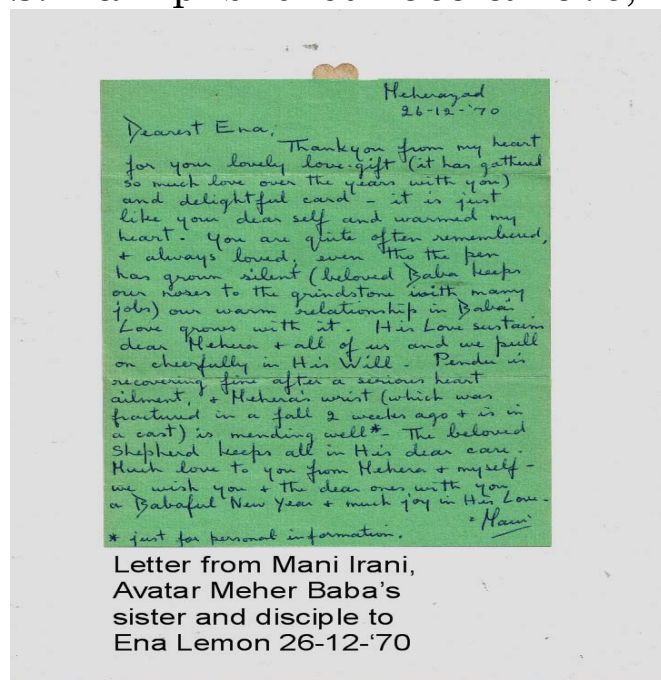 Meherazad
26-12-'70
Dearest Ena,
Thankyou from my heart
for your lovely love-gift (it has gathered
so much love over the years with you)
and delightful card – it is just
like your dear self and warmed my
heart. You are quite often remembered,
+ always loved, even tho the pen
has grown silent (beloved Baba keeps
our noses to the grindstone with many
jobs) our warm relationship in Baba's
Love grows with it. His Love sustains
dear Mehera + all of us and we pull
on cheerfully in His Will. Pendu is
recovering fine after a serious heart
ailment, + Mehera's wrist (which was
fractured in a fall 2 weeks ago + is in
a cast) is mending well*– The beloved
Shepherd keeps all in His dear care.
Much love to you from Mehera + myself –
we wish you + the dear ones with you
a Babaful New Year + much joy in His Love.
- Mani
* just for personal information.
Letter from Mani Irani,
Avatar Meher Baba's
sister and disciple to
Ena Lemon 26-12-'70